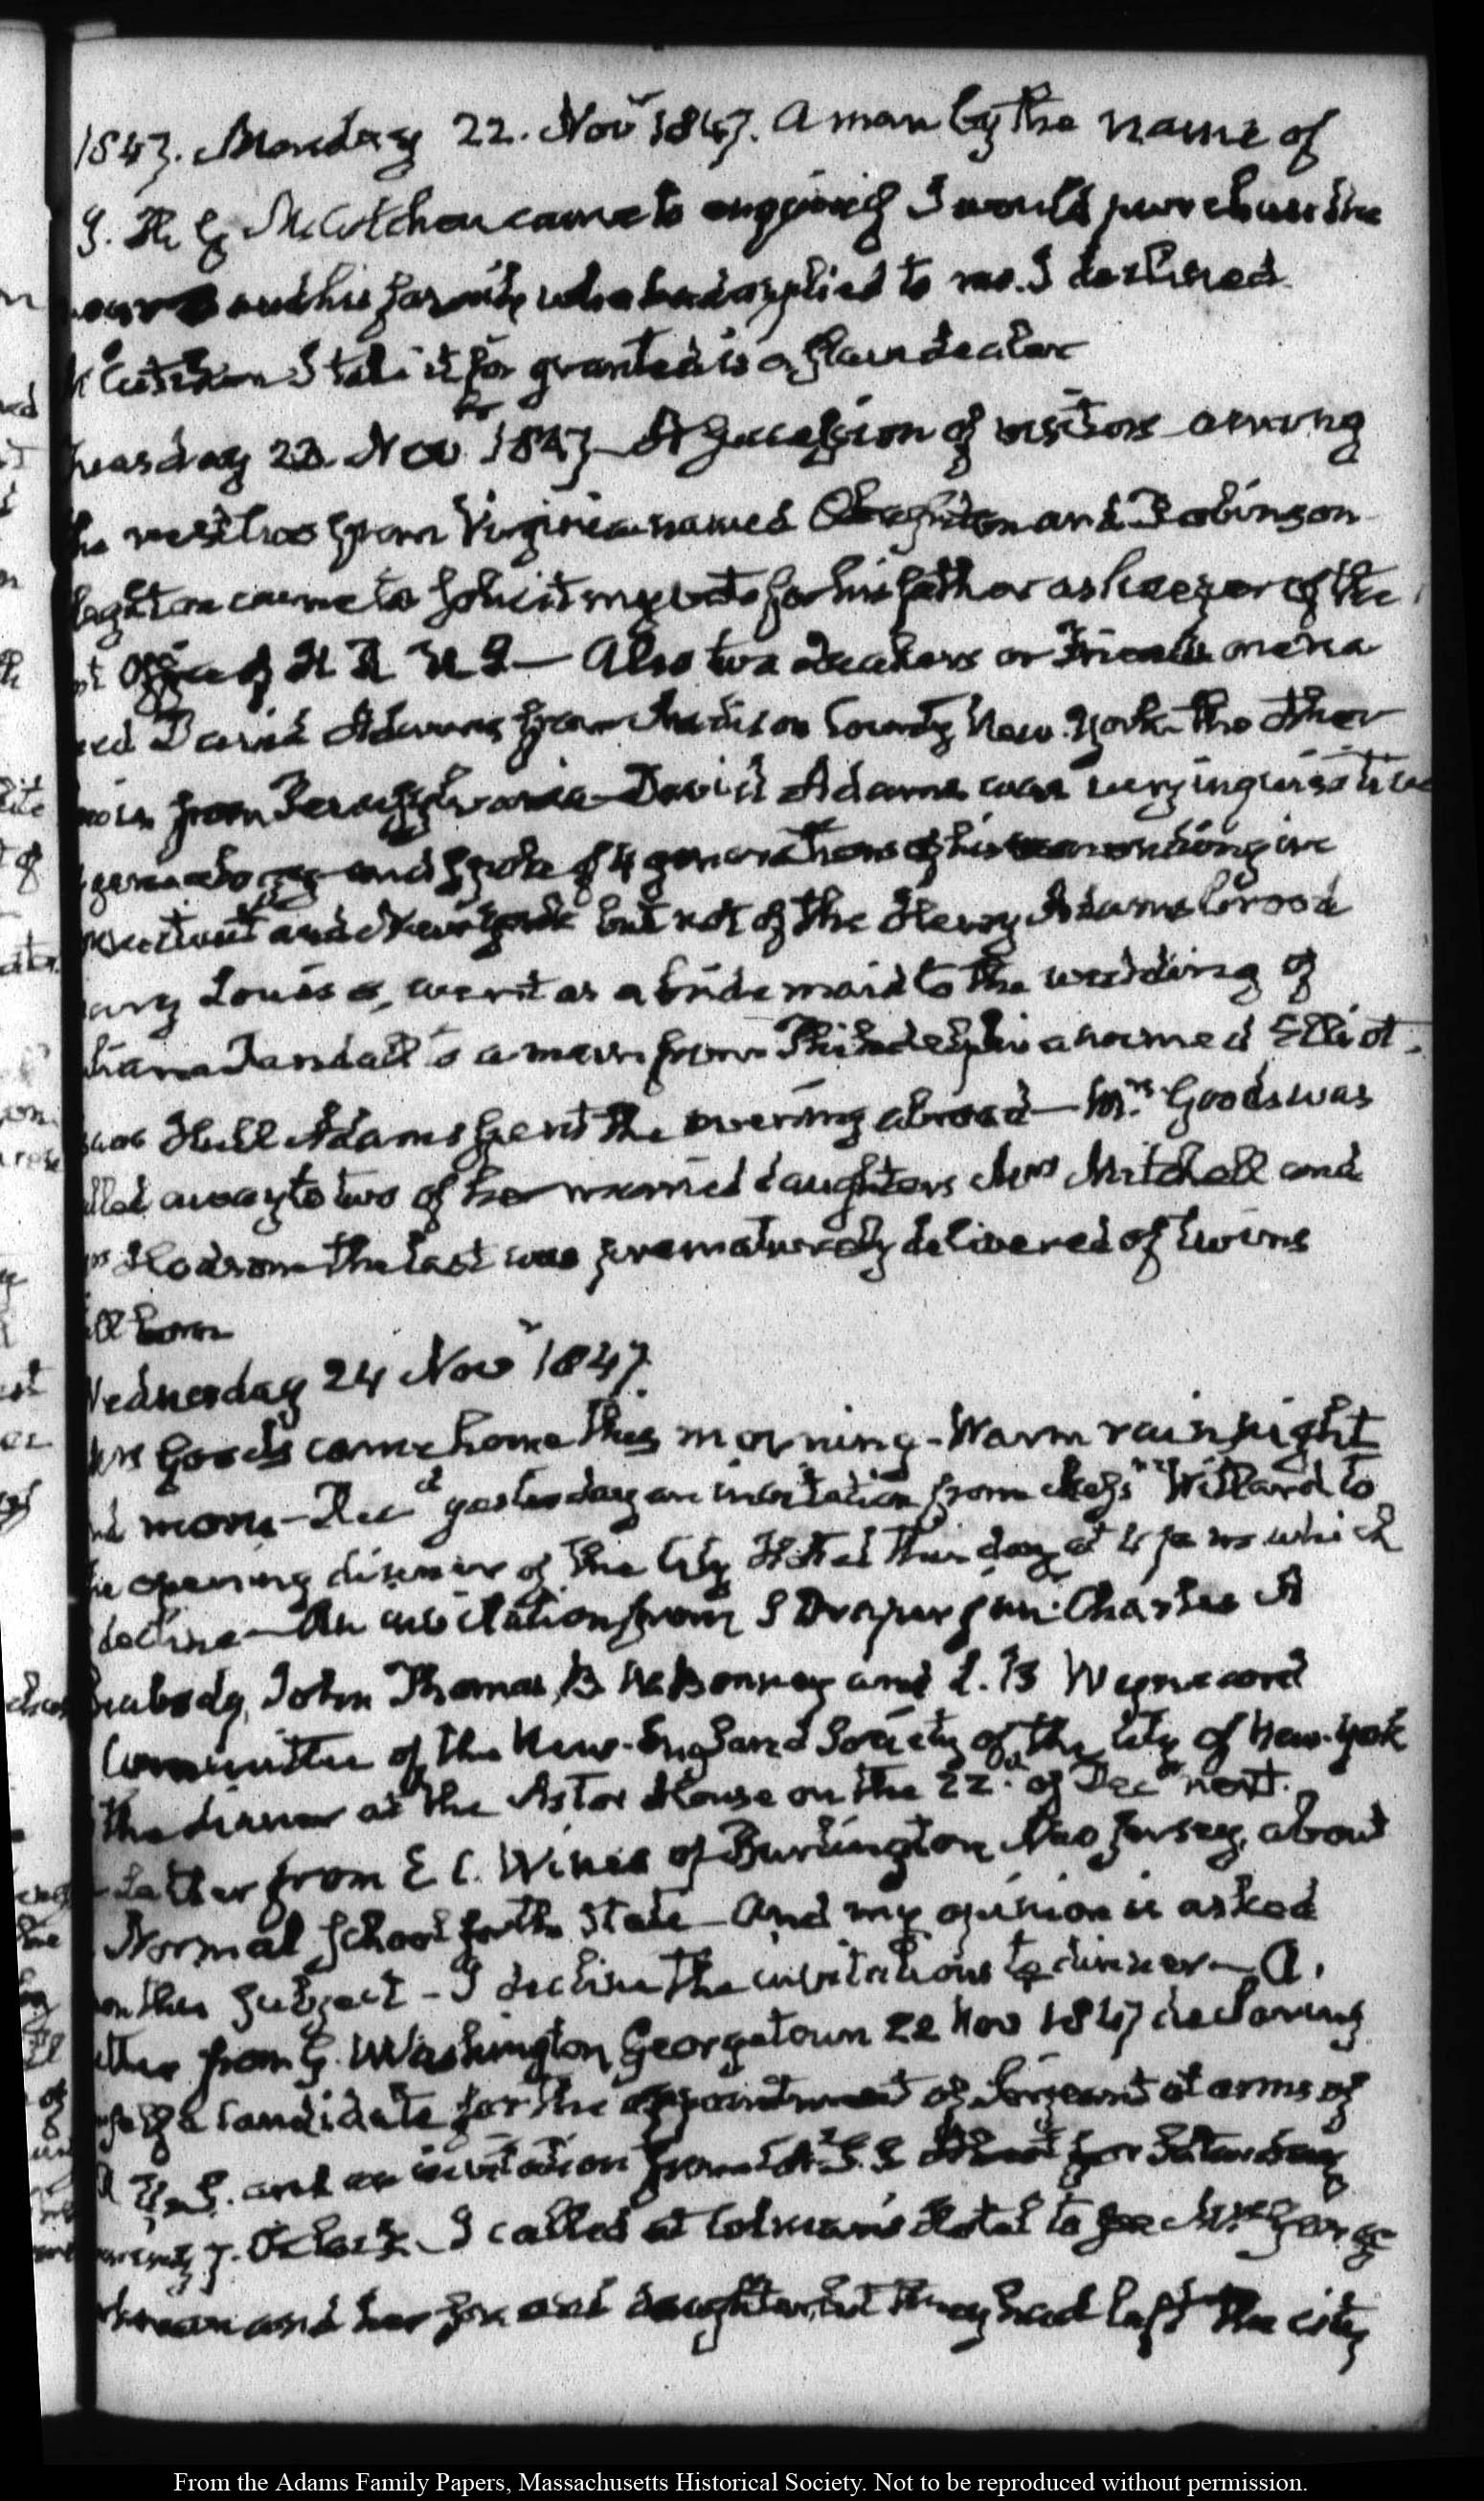 1847. Monday 22. Nov.r 1847. A man by the name of
McCutchen came to enquire if I would purchase the
and his family who had applied to me. I declined
I take it for granted is a slave dealer
uesday 23. Nov.r 1847 A Succession of visitors among
he rest two from Virginia named and Robinson
came to solicit my vote for his father as keeper of the
Office of H R U S — Also two Quakers or Friends one na
ed David Adams from Madison County New-York the other
from Pennsylvania David Adams was very inquisitive
and spoke of 4 generations of his in
and New York but not of the Henry Adams brood
ary Louisa, went as a bride maid to the wedding of
Randall to a man from Philadelphia named Elliot.
Hull Adams spent the evening abroad — Mrs. Goods was
lled away to two of her married daughters Mrs Mitchell and
rs Hodson the last was prematurely delivered of twins
ll born
Wednesday 24 Nov.r 1847.
Mrs Goods came home this morning — Warm rain night
morn — Rec.d yesterday an invitation from Mess.rs Willard to
he opening dinner of the City Hotel this day at 4 p m which
decline — An invitation from S Draper jun. Charles A
Peabody, John Thomas, B W Bonney and L. B Wyman
Committee of the New-England Society of the City of New-York
the dinner at the Astor House on the 22.d of Dec.r next.
Letter from E C. Wines of Burlington, New Jersey, about
Normal School for the State — And my opinion is asked
on this subject — I decline the invitations to dinner — A.
etter from G. Washington Georgetown 22 Nov 1847 declaring
a candidate for the appointment of Serjeant at arms of
U. S. and an invitation from for Saturday
7. O'Clock — I called at Coleman's Hotel to see Mrs George
and her son and daughter, but they had left the city
From the Adams Family Papers, Massachusetts Historical Society. Not to be reproduced without permission.